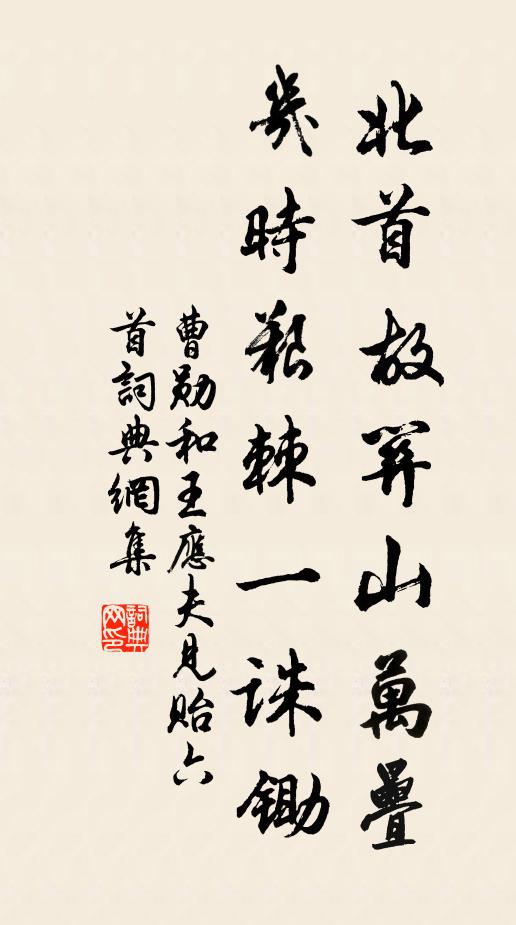 北首故關山萬疊
幾時艱棘一誅鋤
曹勛和王應夫見貽六
首詞典網集
詞典
网印